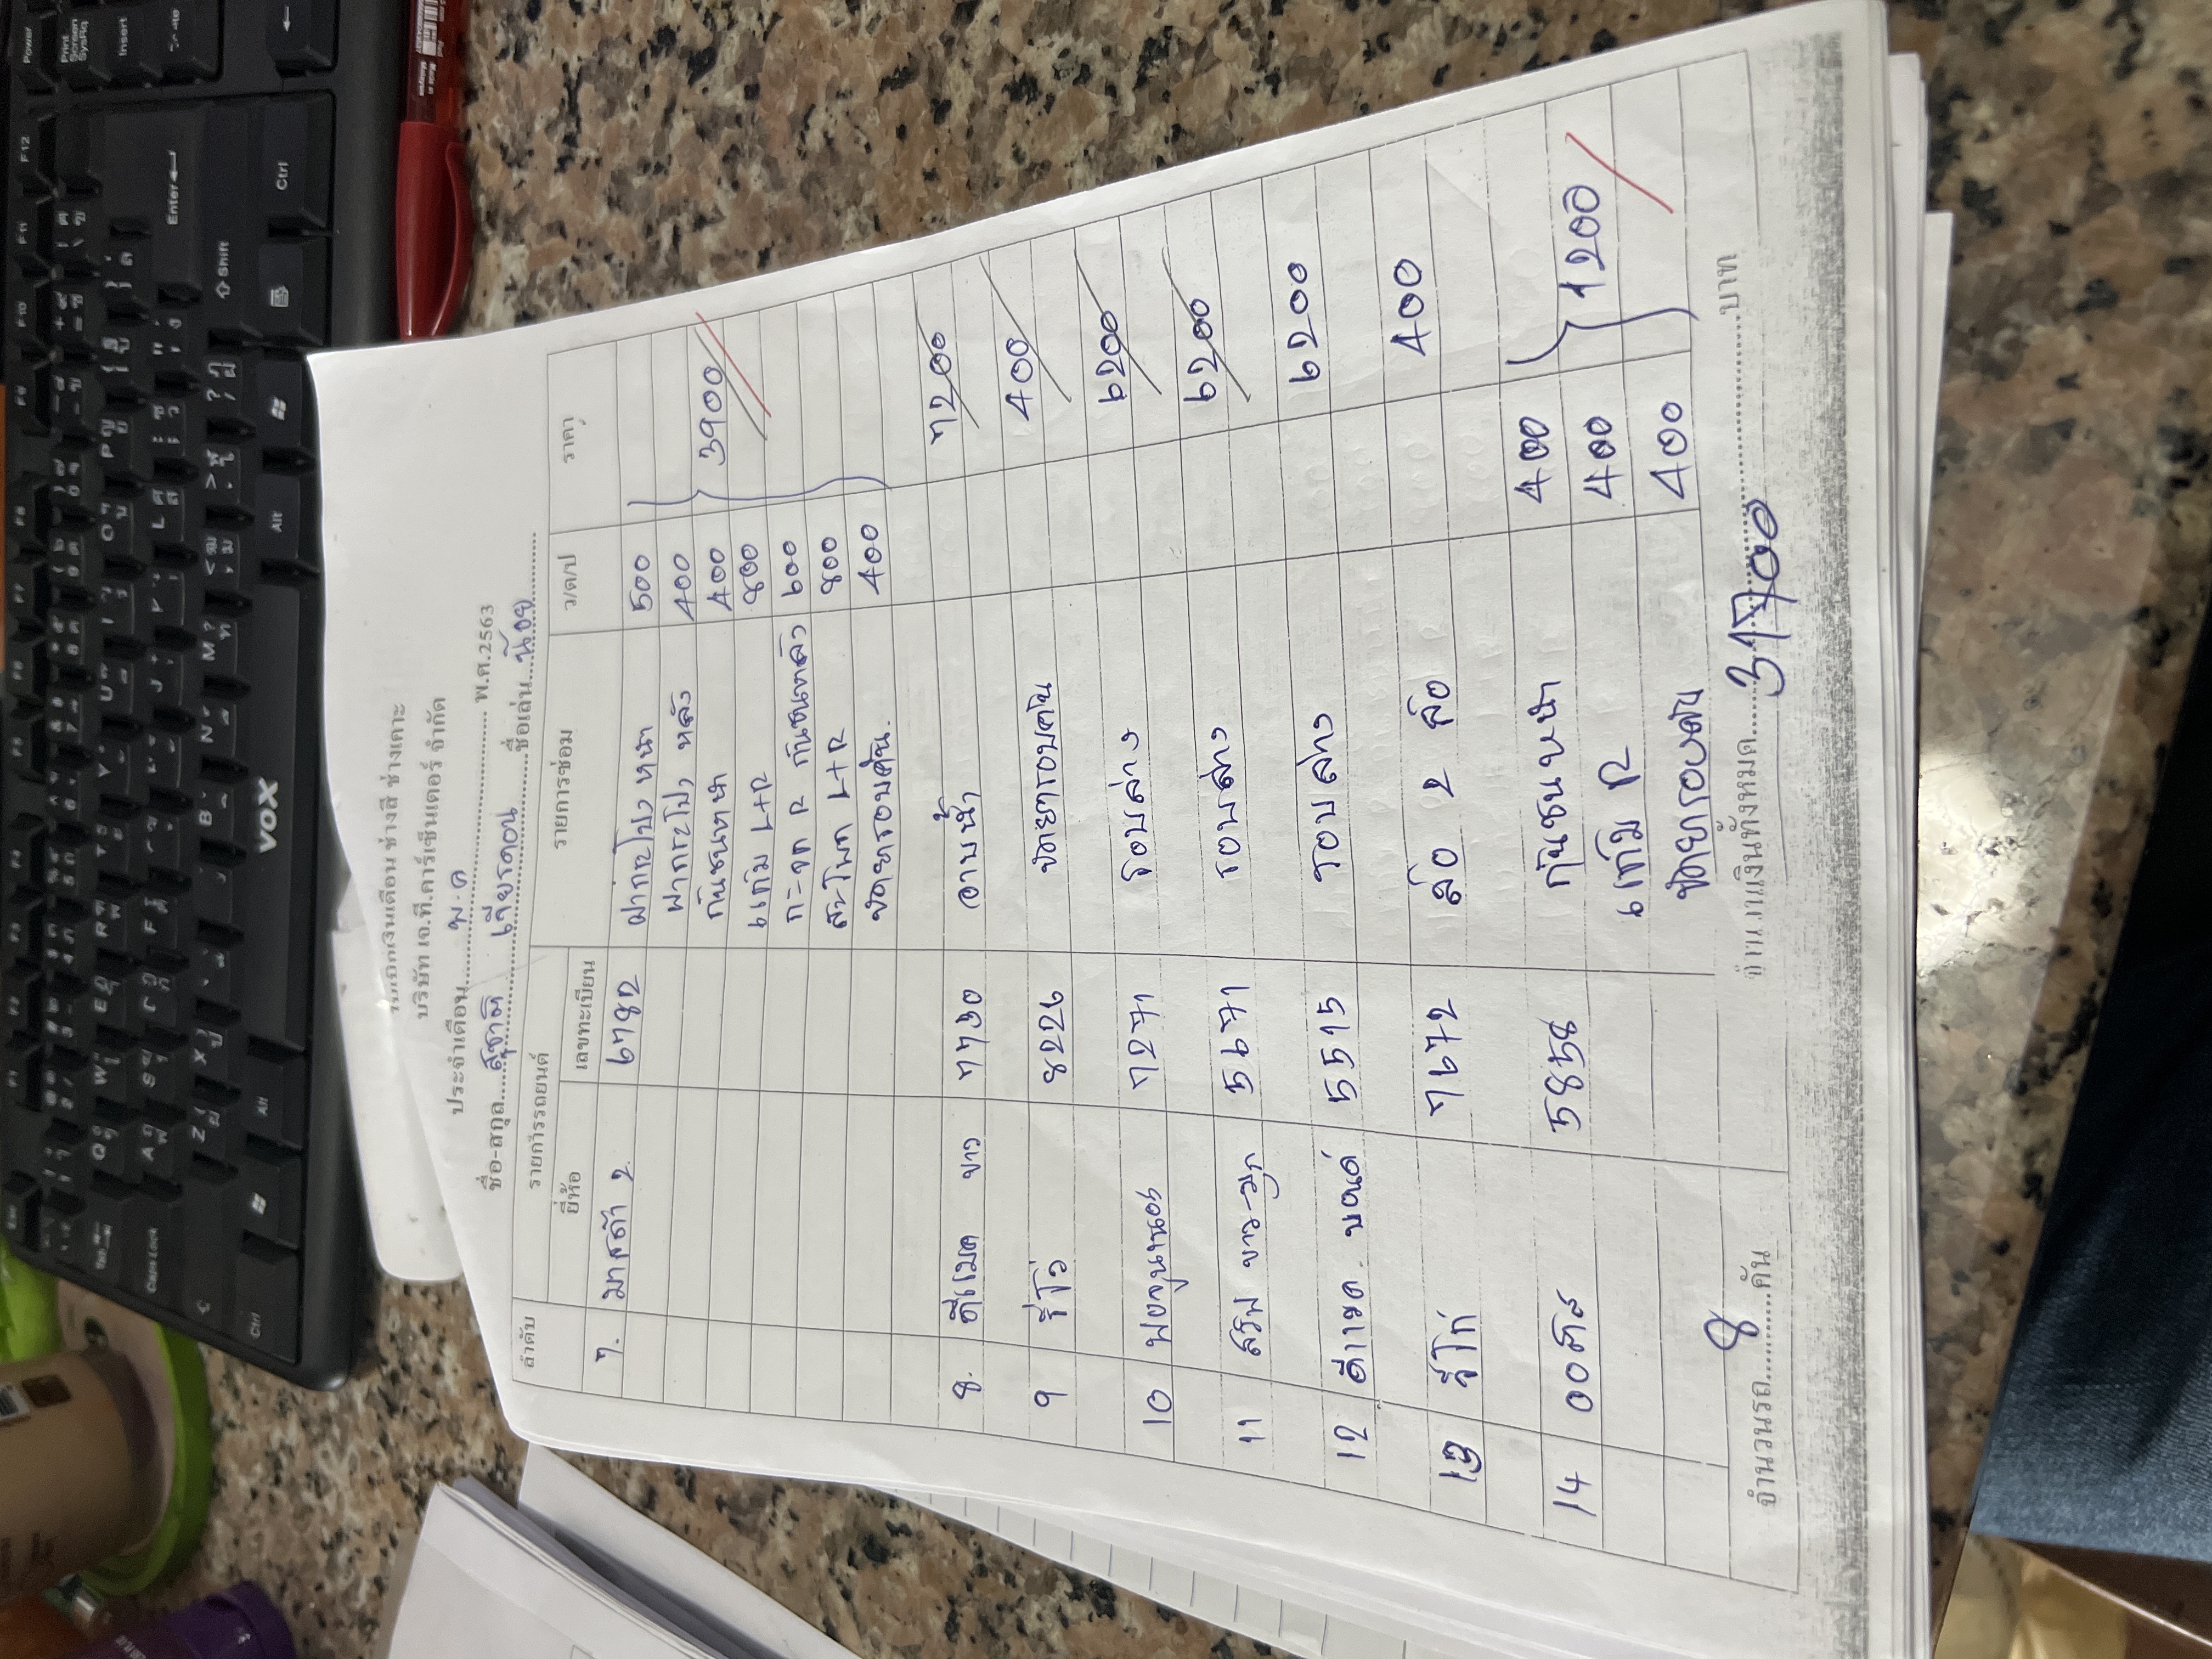 ใบเบิกเงินเดือน ช่างสี ช่างเคาะ
บริษัท เอ.ที.คาร์เซ็นเตอร์ จำกัด
ประจำเดือน พ.ค พ.ศ.2563
ชื่อ-สกุล สุชาติ ชื่อเล่น น้อย
ลำดับ รายการรถยนต์ รายการซ่อม ว/ด/ป ราคา
ยี่ห้อ เลขทะเบียน
7. มาสด้า 2 6782 ฝากระโปรงหน้า 500
ฝากระโปรง หลัง 400
กันชนหน้า 400 3900
แก้ม L+R 800
กระจก R กันชนหลัง 600
สะโพก L+R 800
ขัดยารอบคัน. 400
8. ดีแมค ขาว 7730 อาบน้ำ 7200
9 รีโว่ 8226 ขัดยารอบคัน 400
10 7271 รอบล่าง 6200
11 5671 รอบล่าง 6200
12 ดีแมค 5515 รอบล่าง 6200
13 วีโก่ 7672 ล้อ 2 ล้อ 400
14 5858 กันชนหน้า 400
แก้ม R 400 1200
ขัดยารอบคัน 400
จำนวนรถ 8 คัน จำนวนเงินทั้งหมด 31700 บาท
VOX
Power
Print Screen SysRq
Insert
F12
Enter
Shift
Ctrl
Alt
Caps Lock